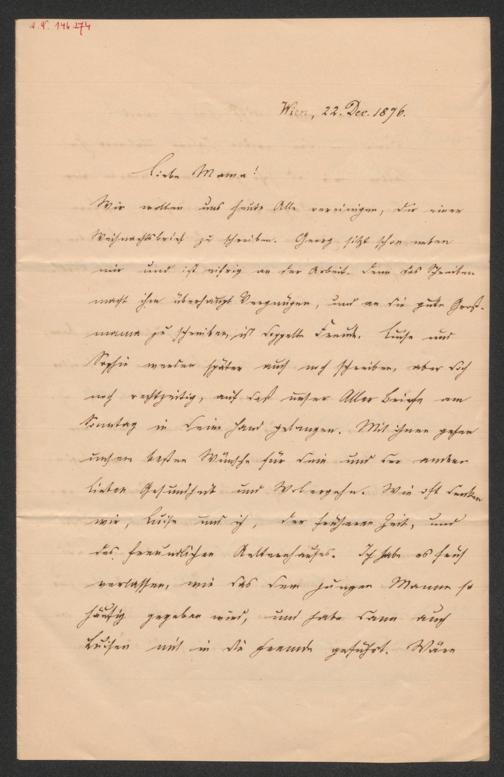 A.N. 146.274
Wien, 22. Dec. 1876.
Liebe Mama!
Wir wollten uns heute Alle vereinigen, Dir einen
Weihnachtsbrief zu schreiben. Georg sitzt schon neben
mir und ist eifrig an der Arbeit. Denn das Schreiben
macht ihm überhaupt Vergnügen, und an die gute Groß-
mama zu schreiben, ist doppelte Freude. Luise und
Sophie werden später auch noch schreiben, aber doch
noch rechtzeitig, auf daß unser Aller Briefe am
Sonntag in Deine Hand gelangen. Mit ihnen gehen
unsere besten Wünsche für Dein und der andern
lieben Gesundheit und Wolergehn. Wie oft denken
wir, Luise und ich, der früheren Zeit, und
des freundlichen Aelternhauses. Ich habe es früh
verlassen, wie das dem jungen Manne so
häufig gegeben wird, und habe dann auch
Luisen mit in die Fremde geführt. Wäre